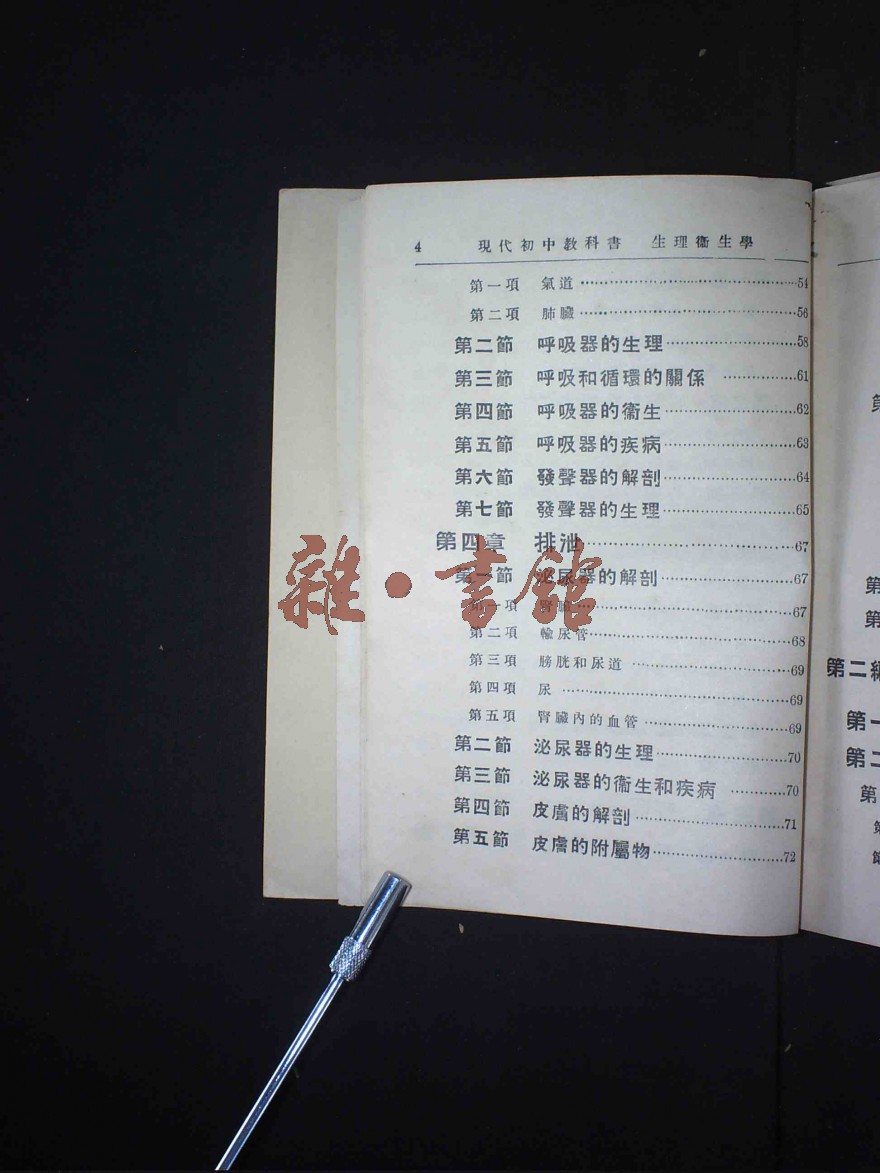 4 現代初中教科書 生理衞生學
第一項 氣道 54
第二項 肺臟 56
第二節 呼吸器的生理 58
第三節 呼吸和循環的關係 61
第四節 呼吸器的衞生 62
第五節 呼吸器的疾病 63
第六節 發聲器的解剖 64
第七節 發聲器的生理 65
第四章 排泄 67
第一節 泌尿器的解剖 67
第一項 腎臟 67
第二項 輸尿管 68
第三項 膀胱和尿道 69
第四項 尿 69
第五項 腎臟內的血管 69
第二節 泌尿器的生理 70
第三節 泌尿器的衞生和疾病 70
第四節 皮膚的解剖 71
第五節 皮膚的附屬物 72
雜·書館
第
第
第二編
第一
第二
第